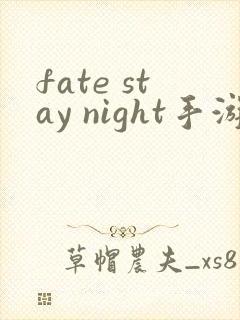 fate st
ay night手游
草帽農夫_xs8